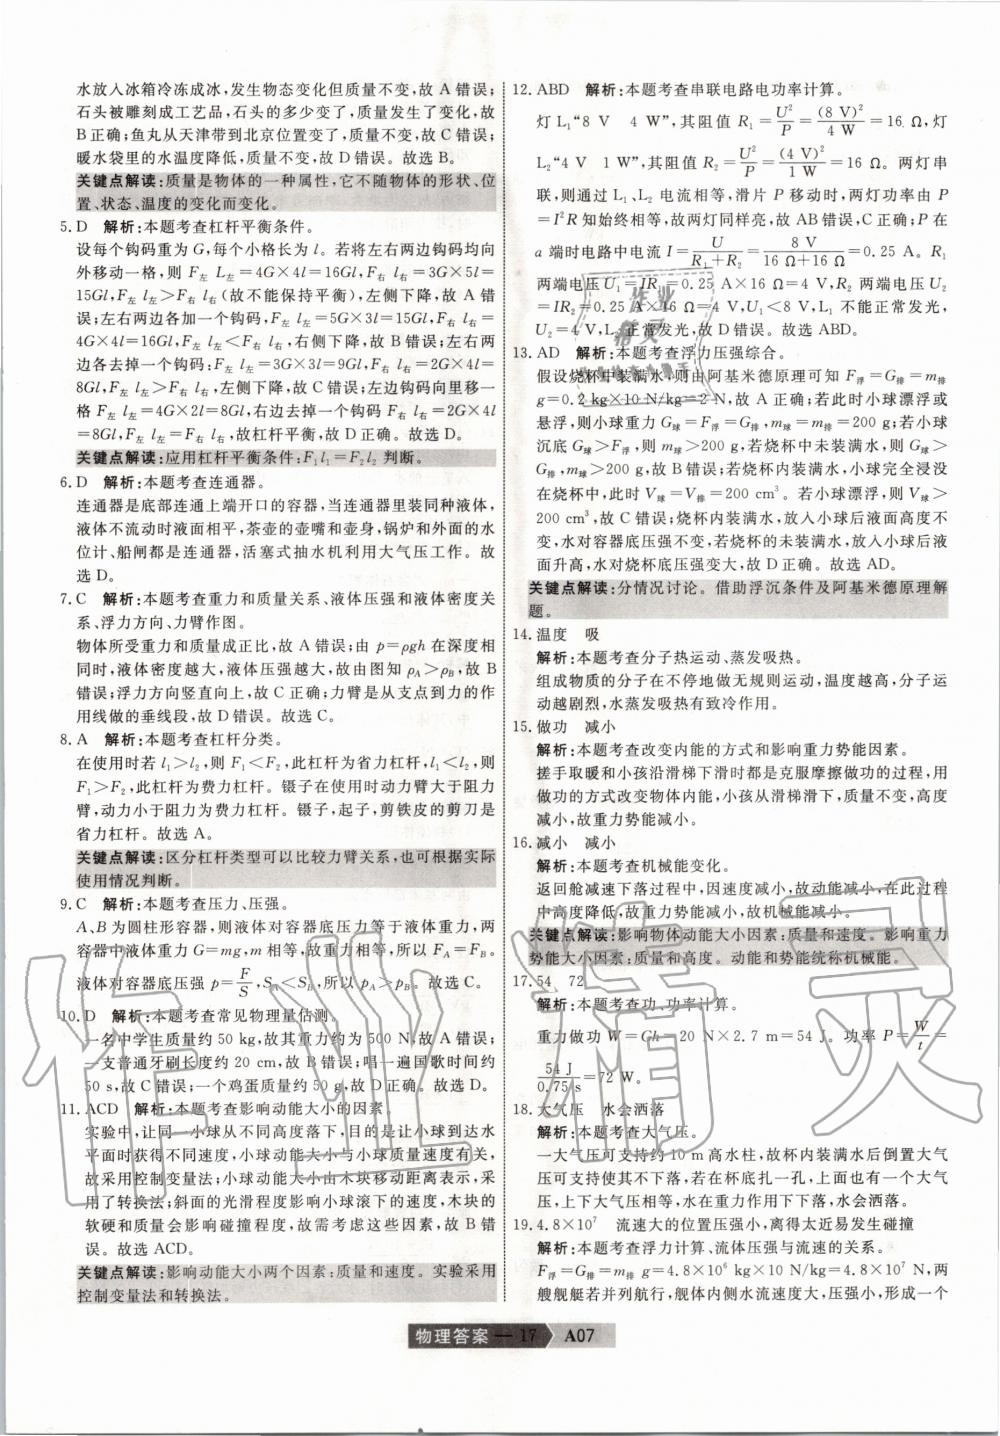 水放入冰箱冷冻成冰,发生物态变化但质量不变,故 A 错误;
石头被雕刻成工艺品,石头的多少变了,质量变小,故
B 正确;鱼丸从天津带到北京位置变了,质量不变,故 C 错误;
暖水袋里的水温度降低,质量不变,故 D 错误。故选 B。
关键点解读:质量是物体的一种属性,它不随物体的形状、位
置、状态、温度的变化而变化。
5. D 解析:本题考查杠杆平衡条件。
设每个钩码重为 G,每个小格长为 l。若将左右两边钩码均向
外移动一格,则 F左 L左=4G×4l=16Gl,F右 l右=3G×5l=
15Gl,F左 l左>F右 l右(故不能保持平衡),左侧下降,故 A 错
误;左右两边各加一个钩码,F左 l左=5G×3l=15Gl,F右 l右=
4G×4l=16Gl,F左 l左<F右 l右,右侧下降,故 B 错误;左右两
边各去掉一个钩码:F左 l左=3G×3l=9Gl,F右 l右=2G×4l=
8Gl,F左 l左>F右 l右,左侧下降,故 C 错误;左边钩码向里移一
格 F左 l左=4G×2l=8Gl,右边去掉一个钩码 F右 l右=2G×4l
=8Gl,F左 l左=F右 l右,故杠杆平衡,故 D 正确。故选 D。
关键点解读:应用杠杆平衡条件:F₁l₁=F₂l₂ 判断。
6. D 解析:本题考查连通器。
连通器是底部连通上端开口的容器,当连通器里装同种液体,
液体不流动时液面相平,茶壶的壶嘴和壶身,锅炉和外面的水
位计、船闸都是连通器,活塞式抽水机利用大气压工作。故
选 D。
7. C 解析:本题考查重力和质量关系、液体压强和液体密度关
系、浮力方向、力臂作图。
物体所受重力和质量成正比,故 A 错误;由 p=ρgh 在深度相
同时,液体密度越大,液体压强越大,故由图知 ρA>ρB,故 B
错误;浮力方向竖直向上,故 C 正确;力臂是从支点到力的作
用线做的垂线段,故 D 错误。故选 C。
8. A 解析:本题考查杠杆分类。
在使用时若 l₁>l₂,则 F₁<F₂,此杠杆为省力杠杆,l₁<l₂,则
F₁>F₂,此杠杆为费力杠杆。镊子在使用时动力臂大于阻力
臂,动力小于阻力为费力杠杆。镊子,起子,剪铁皮的剪刀是
省力杠杆。故选 A。
关键点解读:区分杠杆类型可以比较力臂关系,也可根据实际
使用情况判断。
9. C 解析:本题考查压力、压强。
A、B 为圆柱形容器,则液体对容器底压力等于液体重力,两
容器中液体重力 G=mg,m 相等,故重力相等,所以 FA=FB。
液体对容器底压强 p=F/S,SA<SB,所以 pA>pB。故选 C。
10. D 解析:本题考查常见物理量估测。
一名中学生质量约 50 kg,故其重力约为 500 N,故 A 错误;
一支普通牙刷长度约 20 cm,故 B 错误;唱一遍国歌时间约
50 s,故 C 错误;一个鸡蛋质量约 50 g,故 D 正确。
11. ACD 解析:本题考查影响动能大小的因素。
实验中,让同一小球从不同高度落下,目的是让小球到达水
平面时获得不同速度,小球动能大小与小球质量速度有关,
故采用控制变量法;小球动能大小由木块移动距离表示,故
采用了转换法;斜面的光滑程度影响小球滚下的速度,木块的
软硬和质量会影响碰撞程度,故需考虑这些因素,故 B 错
误。故选 ACD。
关键点解读:影响动能大小两个因素:质量和速度。实验采用
控制变量法和转换法。
12. ABD 解析:本题考查串联电路电功率计算。
灯 L₁“8 V 4 W”,其阻值 R₁=U²/P=(8 V)²/4 W=16 Ω,灯
L₂“4 V 1 W”,其阻值 R₂=U²/P=(4 V)²/1 W=16 Ω。两灯串
联,则通过 L₁、L₂ 电流相等,滑片 P 移动时,两灯功率由 P
=I²R 知始终相等,故两灯同样亮,故 AB 错误,C 正确;P 在
a 端时电路中电流 I=U/(R₁+R₂)=8 V/(16 Ω+16 Ω)=0.25 A。R₁
两端电压 U₁=IR₁=0.25 A×16 Ω=4 V,R₂ 两端电压 U₂
=IR₂=0.25 A×16 Ω=4 V,U₁<8 V,L₁ 不能正常发光,
U₂=4 V,L₂ 正常发光,故 D 错误。故选 ABD。
13. AD 解析:本题考查浮力压强综合。
假设烧杯中装满水,则由阿基米德原理可知 F浮=G排=m排
g=0.2 kg×10 N/kg=2 N,故 A 正确;若此时小球漂浮或
悬浮,则小球重力 G球=F浮=G排,m球=m排=200 g;若小球
沉底 G球>F浮,则 m球>200 g,若烧杯中未装满水,则 G球>
G排,m球>200 g,故 B 错误;若烧杯内装满水,小球完全浸没
在烧杯中,此时 V球=V排=200 cm³。若小球漂浮,则 V球>
200 cm³,故 C 错误;烧杯内装满水,放入小球后液面高度不
变,水对容器底压强不变,若烧杯中未装满水,放入小球后液
面升高,水对烧杯底压强变大,故 D 正确。故选 AD。
关键点解读:分情况讨论。借助浮沉条件及阿基米德原理解
题。
14. 温度 吸
解析:本题考查分子热运动、蒸发吸热。
组成物质的分子在不停地做无规则运动,温度越高,分子运
动越剧烈,水蒸发吸热有致冷作用。
15. 做功 减小
解析:本题考查改变内能的方式和影响重力势能因素。
搓手取暖和小孩沿滑梯下滑时都是克服摩擦做功的过程,用
做功的方式改变物体内能,小孩从滑梯滑下,质量不变,高度
减小,故重力势能减小。
16. 减小 减小
解析:本题考查机械能变化。
返回舱减速下落过程中,因速度减小,故动能减小,在此过程
中高度降低,故重力势能减小,故机械能减小。
关键点解读:影响物体动能大小因素:质量和速度。影响重力
势能大小因素:质量和高度。动能和势能统称机械能。
17. 54 72
解析:本题考查功、功率计算。
重力做功 W=Gh=20 N×2.7 m=54 J。功率 P=W/t=
54 J/0.75 s=72 W。
18. 大气压 水会洒落
解析:本题考查大气压。
一大气压可支持约 10 m 高水柱,故杯内装满水后倒置大气
压可支持使其不下落,若在杯底扎一孔,上下均有大气
压,上下大气压相等,水在重力作用下下落,水会洒落。
19. 4.8×10⁷ 流速大的位置压强小,离得太近易发生碰撞
解析:本题考查浮力计算、流体压强与流速的关系。
F浮=G排=m排 g=4.8×10⁶ kg×10 N/kg=4.8×10⁷ N,两
艘舰艇若并列航行,舰体内侧水流速度大,压强小,形成一个
物理答案 — 17 A07
作业精灵